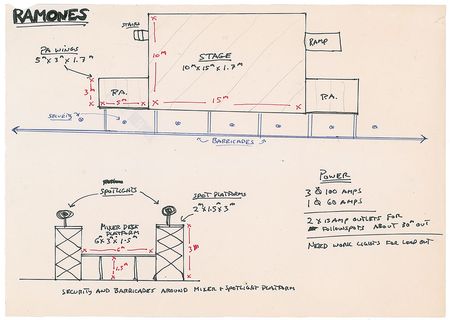 RAMONES
P.A WINGS
5ᵐ x 3ᵐ x 1.7ᵐ
STAIRS
STAGE
10ᵐ x 15ᵐ x 1.7ᵐ
RAMP
10ᵐ
3ᵐ
P.A.
5ᵐ
15ᵐ
P.A.
SECURITY
BARRICADES
SPOTLIGHTS
SPOT PLATFORMS
2ᵐ x 1.5 x 3ᵐ
MIXER DESK
PLATFORM
6ᵐ x 3ᵐ x 1.5ᵐ
6ᵐ
1.5ᵐ
3ᵐ
POWER
3 @ 100 AMPS
1 @ 60 AMPS
2 x 15 AMP OUTLETS FOR
FOLLOWSPOTS ABOUT 30ᵐ OUT
NEED WORK LIGHTS FOR LOAD OUT
SECURITY AND BARRICADES AROUND MIXER + SPOTLIGHT PLATFORM